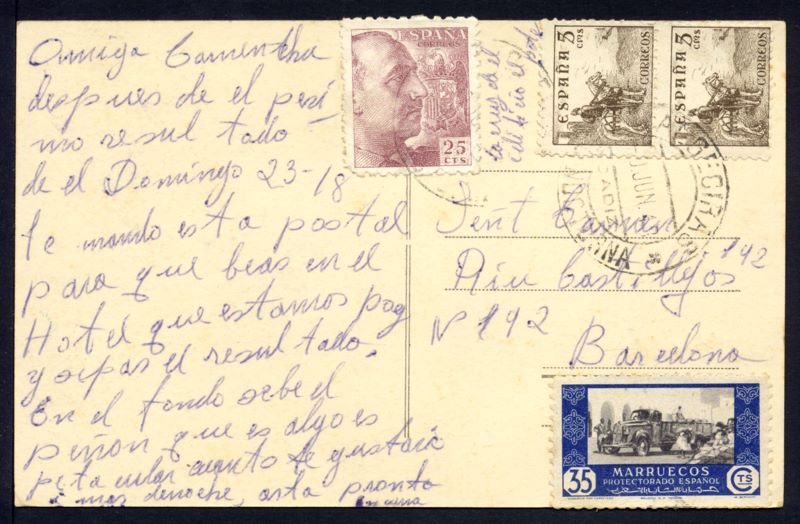 Amiga Carmencha
despues de el pesi
mo resultado
de el Domingo 23-18
te mando esta postal
para que beas en el
Hotel que estamos pog
y sepas el resultado.
En el fondo sebe el
peñon que es algo es
petacular cuanto te gustaria
mas denoche, asta pronto
la cruz de el
edificio el
ESPAÑA
CORREOS
25
CTS
ESPAÑA 5
CTS
CORREOS
ESPAÑA 5
CTS
CORREOS
ALGECIRAS
CADIZ
JUN
NOCTURNA
Señt Carmen
Riu Castillejos 192
Nº 192
Barcelona
MARRUECOS
PROTECTORADO ESPAÑOL
35 CTS